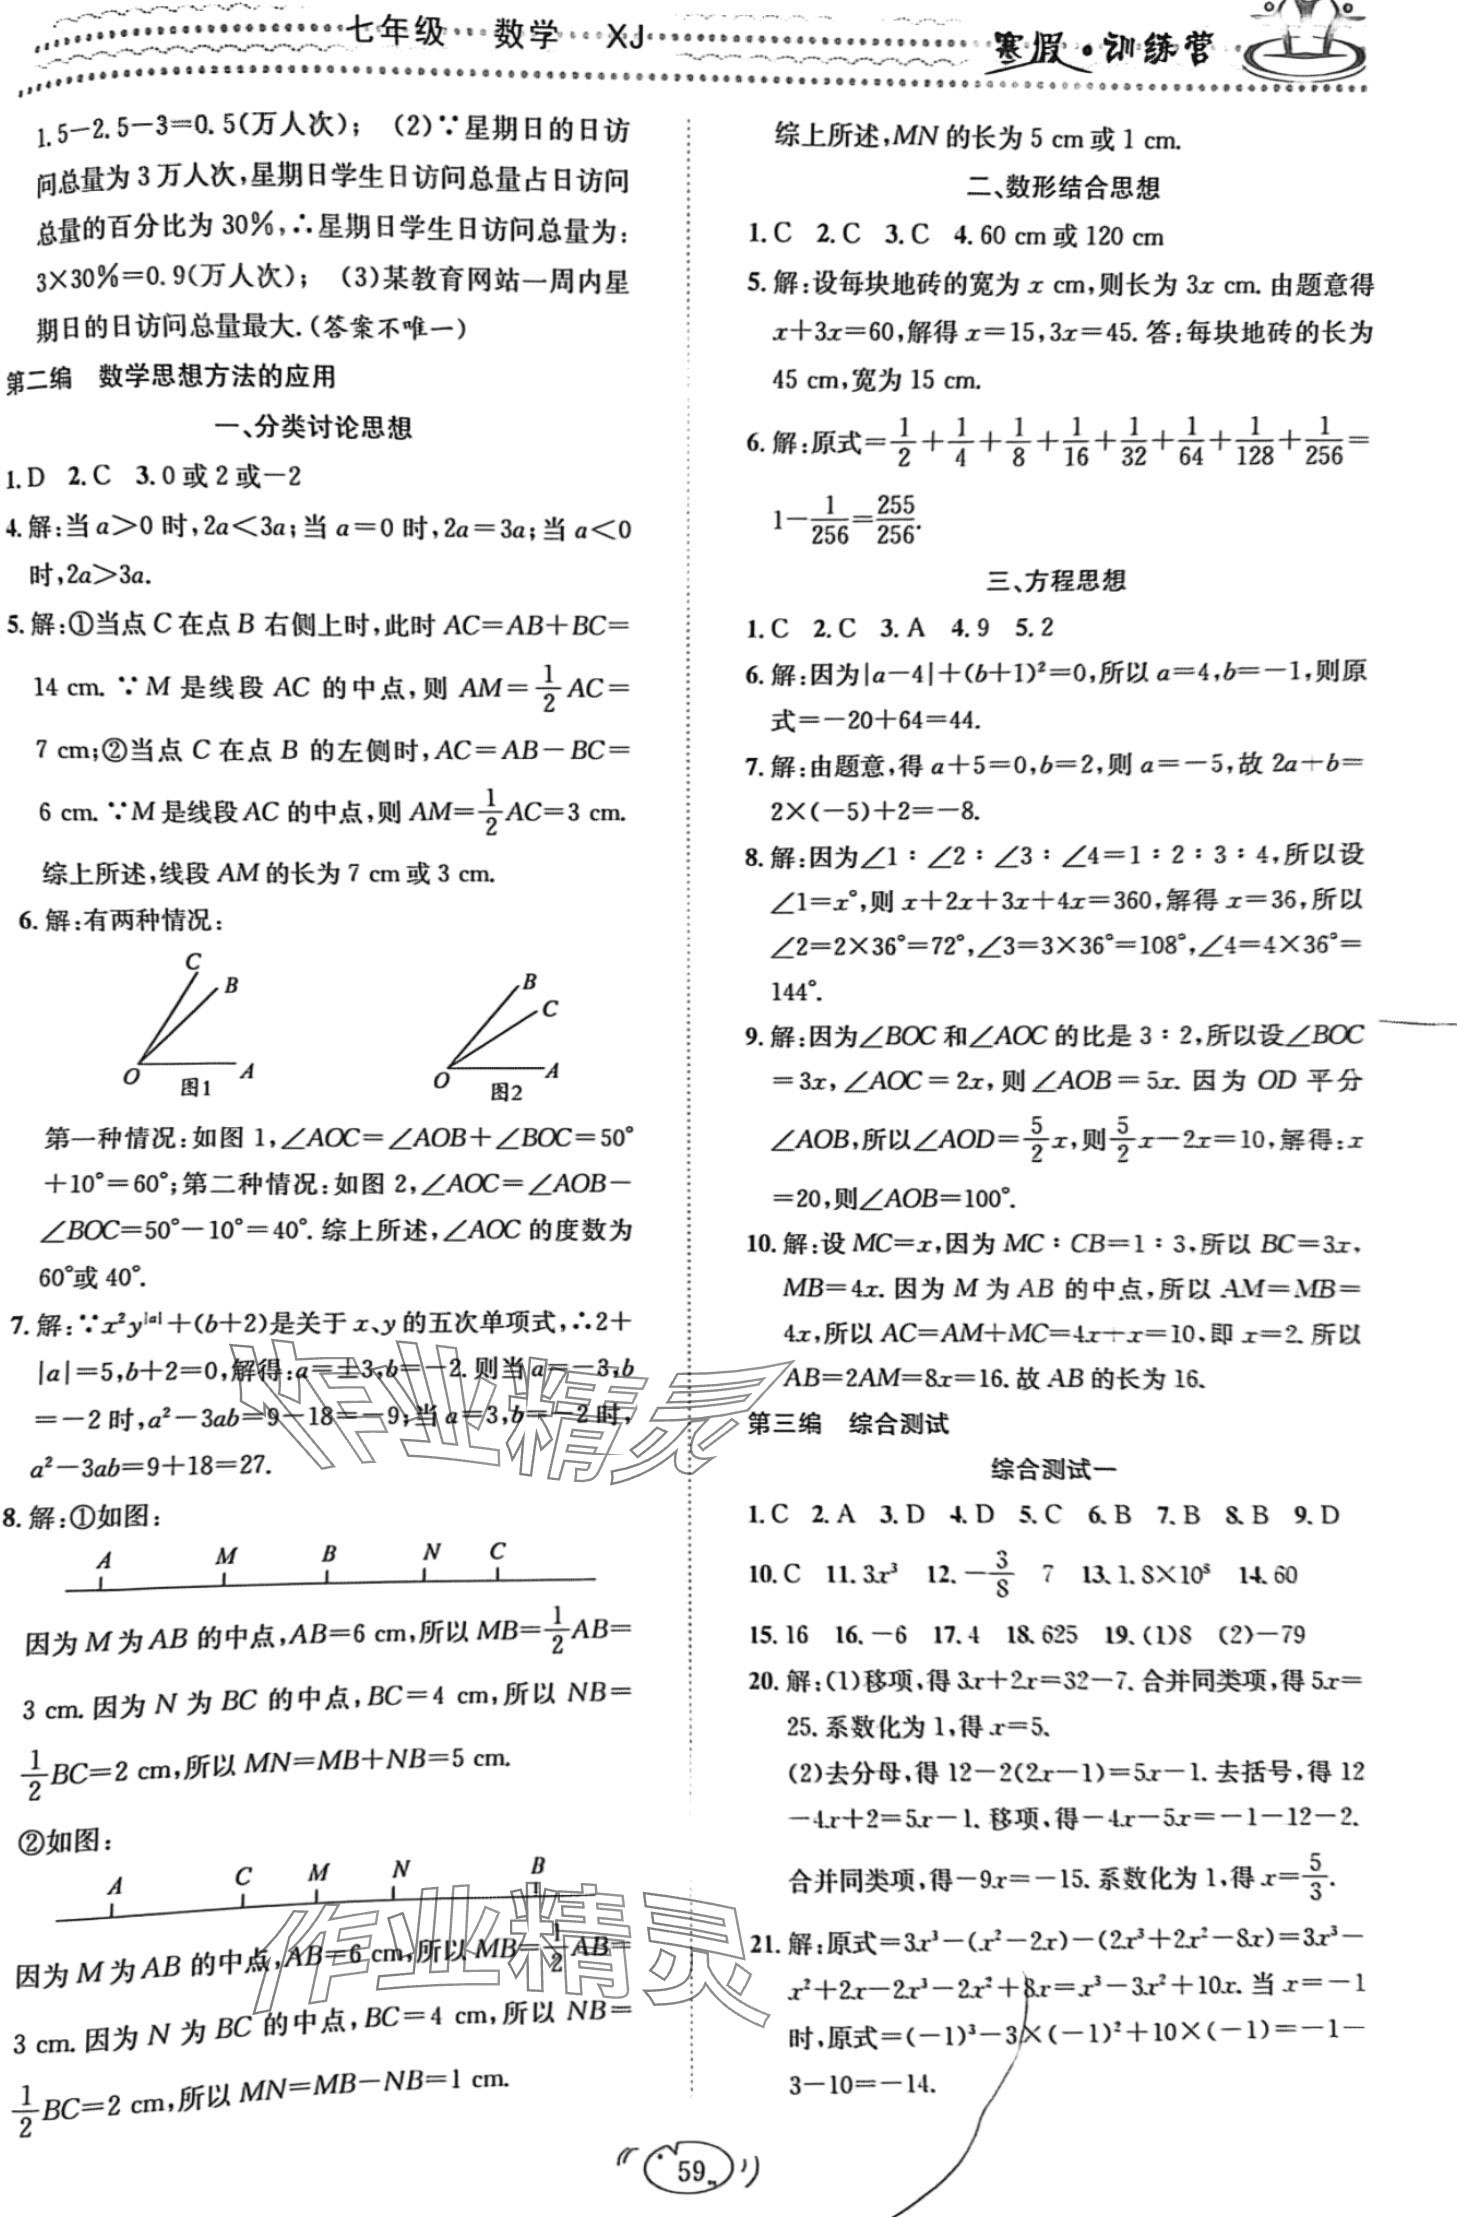 七年级 数学 XJ
寒假·训练营
1.5－2.5－3＝0.5(万人次)； (2)∵星期日的日访
问总量为3万人次,星期日学生日访问总量占日访问
总量的百分比为30%,∴星期日学生日访问总量为:
3×30%＝0.9(万人次)； (3)某教育网站一周内星
期日的日访问总量最大.(答案不唯一)
第二编 数学思想方法的应用
一、分类讨论思想
1.D 2.C 3.0或2或－2
4.解:当a＞0时,2a＜3a;当a＝0时,2a＝3a;当a＜0
时,2a＞3a.
5.解:①当点C在点B右侧上时,此时AC＝AB＋BC＝
14 cm.∵M是线段AC的中点,则AM＝1/2AC＝
7 cm;②当点C在点B的左侧时,AC＝AB－BC＝
6 cm.∵M是线段AC的中点,则AM＝1/2AC＝3 cm.
综上所述,线段AM的长为7 cm或3 cm.
6.解:有两种情况:
C B O A 图1
B C O A 图2
第一种情况:如图1,∠AOC＝∠AOB＋∠BOC＝50°
＋10°＝60°;第二种情况:如图2,∠AOC＝∠AOB－
∠BOC＝50°－10°＝40°.综上所述,∠AOC的度数为
60°或40°.
7.解:∵x²y^|a|＋(b＋2)是关于x、y的五次单项式,∴2＋
|a|＝5,b＋2＝0,解得:a＝±3,b＝－2.则当a＝－3,b
＝－2时,a²－3ab＝9－18＝－9;当a＝3,b＝－2时,
a²－3ab＝9＋18＝27.
8.解:①如图:
A M B N C
因为M为AB的中点,AB＝6 cm,所以MB＝1/2AB＝
3 cm.因为N为BC的中点,BC＝4 cm,所以NB＝
1/2BC＝2 cm,所以MN＝MB＋NB＝5 cm.
②如图:
A C M N B
因为M为AB的中点,AB＝6 cm,所以MB＝1/2AB＝
3 cm.因为N为BC的中点,BC＝4 cm,所以NB＝
1/2BC＝2 cm,所以MN＝MB－NB＝1 cm.
综上所述,MN的长为5 cm或1 cm.
二、数形结合思想
1.C 2.C 3.C 4.60 cm或120 cm
5.解:设每块地砖的宽为x cm,则长为3x cm.由题意得
x＋3x＝60,解得x＝15,3x＝45.答:每块地砖的长为
45 cm,宽为15 cm.
6.解:原式＝1/2＋1/4＋1/8＋1/16＋1/32＋1/64＋1/128＋1/256＝
1－1/256＝255/256.
三、方程思想
1.C 2.C 3.A 4.9 5.2
6.解:因为|a－4|＋(b＋1)²＝0,所以a＝4,b＝－1,则原
式＝－20＋64＝44.
7.解:由题意,得a＋5＝0,b＝2,则a＝－5,故2a＋b＝
2×(－5)＋2＝－8.
8.解:因为∠1∶∠2∶∠3∶∠4＝1∶2∶3∶4,所以设
∠1＝x°,则x＋2x＋3x＋4x＝360,解得x＝36,所以
∠2＝2×36°＝72°,∠3＝3×36°＝108°,∠4＝4×36°＝
144°.
9.解:因为∠BOC和∠AOC的比是3∶2,所以设∠BOC
＝3x,∠AOC＝2x,则∠AOB＝5x.因为OD平分
∠AOB,所以∠AOD＝5/2x,则5/2x－2x＝10,解得:x
＝20,则∠AOB＝100°.
10.解:设MC＝x,因为MC∶CB＝1∶3,所以BC＝3x,
MB＝4x.因为M为AB的中点,所以AM＝MB＝
4x,所以AC＝AM＋MC＝4x＋x＝10,即x＝2.所以
AB＝2AM＝8x＝16.故AB的长为16.
第三编 综合测试
综合测试一
1.C 2.A 3.D 4.D 5.C 6.B 7.B 8.B 9.D
10.C 11.3x³ 12.－3/8 7 13.1.8×10⁸ 14.60
15.16 16.－6 17.4 18.625 19.(1)8 (2)－79
20.解:(1)移项,得3x＋2x＝32－7.合并同类项,得5x＝
25.系数化为1,得x＝5.
(2)去分母,得12－2(2x－1)＝5x－1.去括号,得12
－4x＋2＝5x－1.移项,得－4x－5x＝－1－12－2.
合并同类项,得－9x＝－15.系数化为1,得x＝5/3.
21.解:原式＝3x³－(x²－2x)－(2x³＋2x²－8x)＝3x³－
x²＋2x－2x³－2x²＋8x＝x³－3x²＋10x.当x＝－1
时,原式＝(－1)³－3×(－1)²＋10×(－1)＝－1－
3－10＝－14.
作业精灵
作业精灵
59